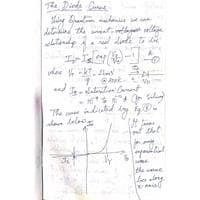 The Diode Curve
Using Quantum mechanics we can
determine the current voltage
relationship of a real diode to be,
I_D = I_S [exp(V_D/V_T) - 1] — ①
where V_T = kT/q = 26mV
@ 300K
and I_S = Saturation Current
(for Silicon)
The curve indicated by Eq ① is
shown below:
It turns
out that
for any
exponential
curve
the curve
lies along
x-axis